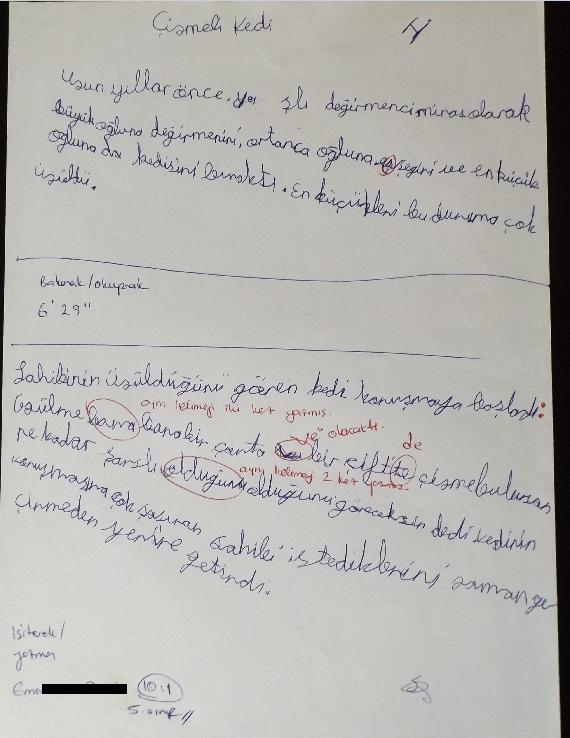 Çizmeli Kedi
Uzun yıllar önce, ya şlı değirmenci miras olarak
büyük oğluna değirmenini, ortanca oğluna eşeğini ve en küçük
oğluna da kedisini bıraktı. En küçükleri bu duruma çok
üzüldü.
Bakarak/okuyarak
6' 29"
Sahibinin üzüldüğünü gören kedi konuşmaya başladı:
aynı kelimeyi iki kez yazmış.
Üzülme bana bana bir çanta bir çift te çizme bulursan
"ve" olacaktı.
de
ne kadar şanslı olduğunu olduğunu göreceksin dedi kedinin
aynı kelimeyi 2 kez yazmış
konuşmasına çok şaşıran sahibi istediklerini zaman ge
çirmeden yerine getirdi.
İşiterek/
yazma
10:1
5. sınıf //